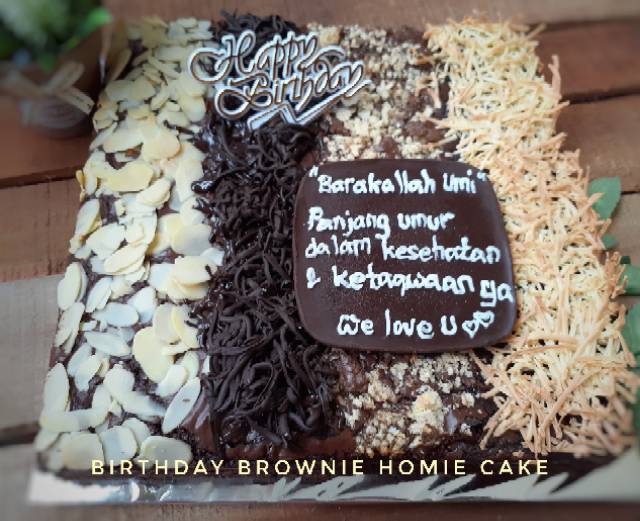 Happy
Birthday
"Barakallah Umi"
Panjang umur
dalam kesehatan
& ketaqwaan ya
We love U
BIRTHDAY BROWNIE HOMIE CAKE